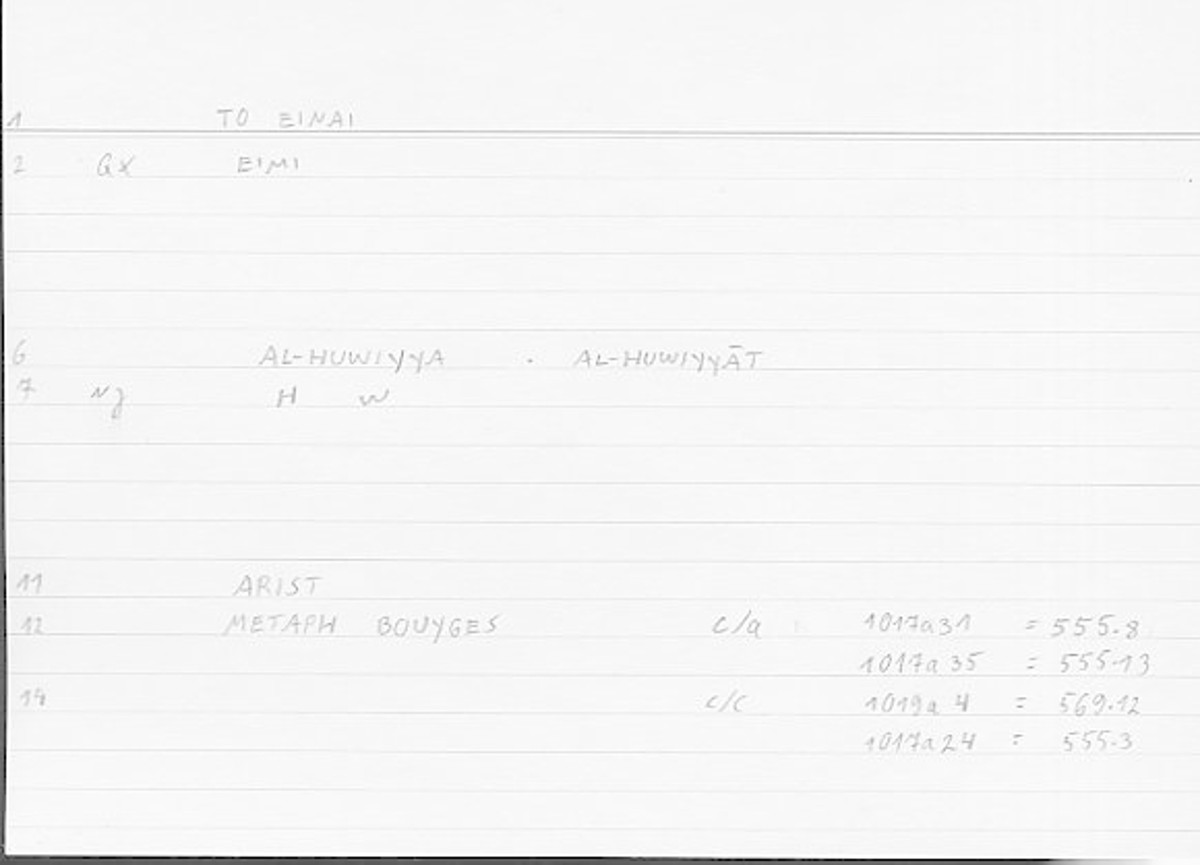 1 TO EINAI
2 GX EIMI
6 AL-HUWIYYA . AL-HUWIYYĀT
7 Nj H W
11 ARIST
12 METAPH BOUYGES c/a 1017a31 = 555.8
1017a35 = 555.13
14 c/c 1019a4 = 569.12
1017a24 = 555.3